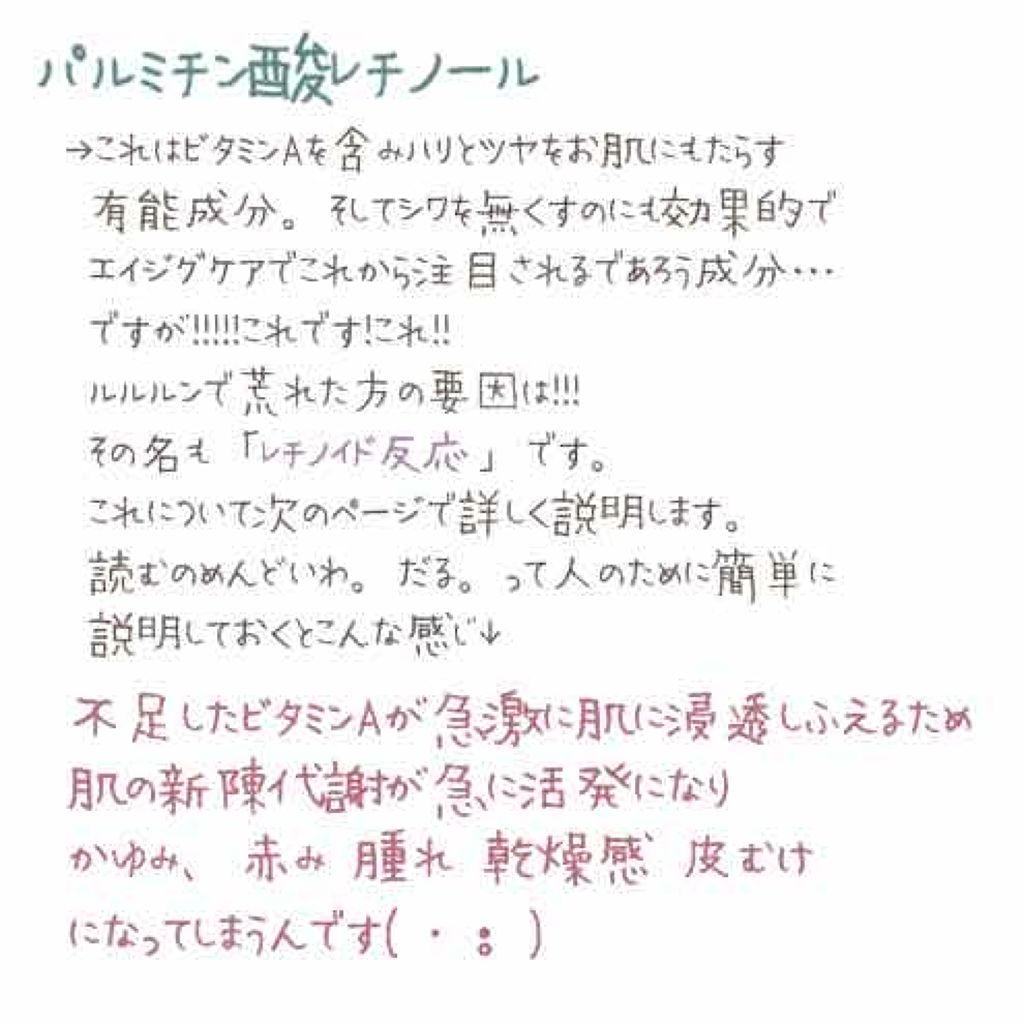 パルミチン酸レチノール
→これはビタミンAを含みハリとツヤをお肌にもたらす
有能成分。そしてシワを無くすのにも効果的で
エイジゲケアでこれから注目されるであろう成分…
ですが!!!!!これです!これ!!
ルルルンで荒れた方の要因は!!!
その名も「レチノイド反応」です。
これについて次のページで詳しく説明します。
読むのめんどいわ。だる。って人のために簡単に
説明しておくとこんな感じ↓
不足したビタミンAが急激に肌に浸透しふえるため
肌の新陳代謝が急に活発になり
かゆみ、赤み 腫れ 乾燥感 皮むけ
になってしまうんです( ・ ; )